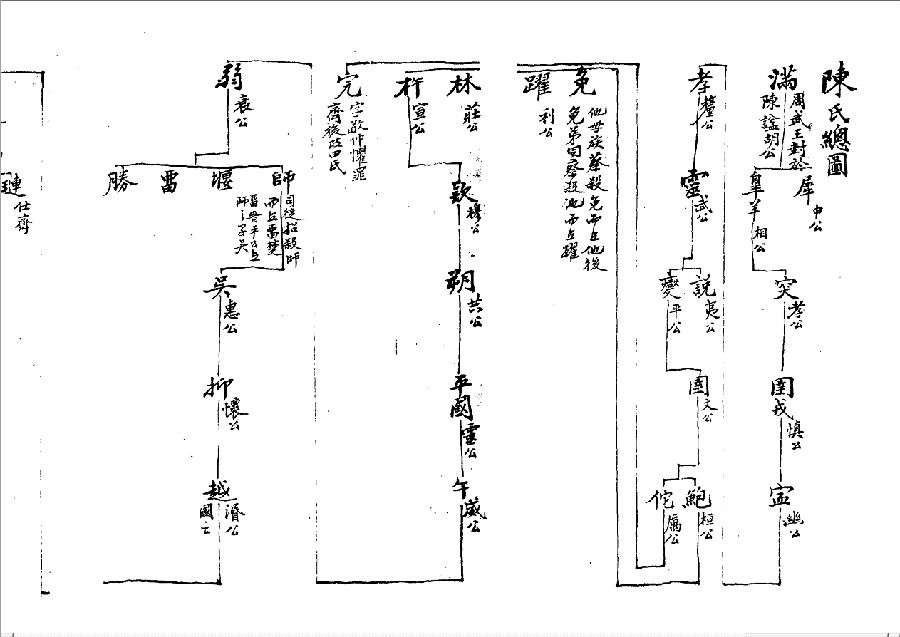 陳氏總圖
滿
周武王封於
陳諡胡公
犀
申公
皐羊
相公
突
孝公
圉戎
慎公
寍
幽公
孝
釐公
靈
武公
說
夷公
燮
平公
圉
文公
鮑
桓公
佗
厲公
免
他母族蔡殺免而立他後
免弟同蔡殺他而立躍
躍
利公
林
莊公
杵
宣公
欵
穆公
朔
共公
平國
靈公
午
成公
完
字敬仲懼罪
齊後改田氏
弱
哀公
師
司徒招殺師
而立畱楚
師之子吳
堰
畱
勝
吳
惠公
柳
懷公
越
湣公
國亡
璉
仕齊